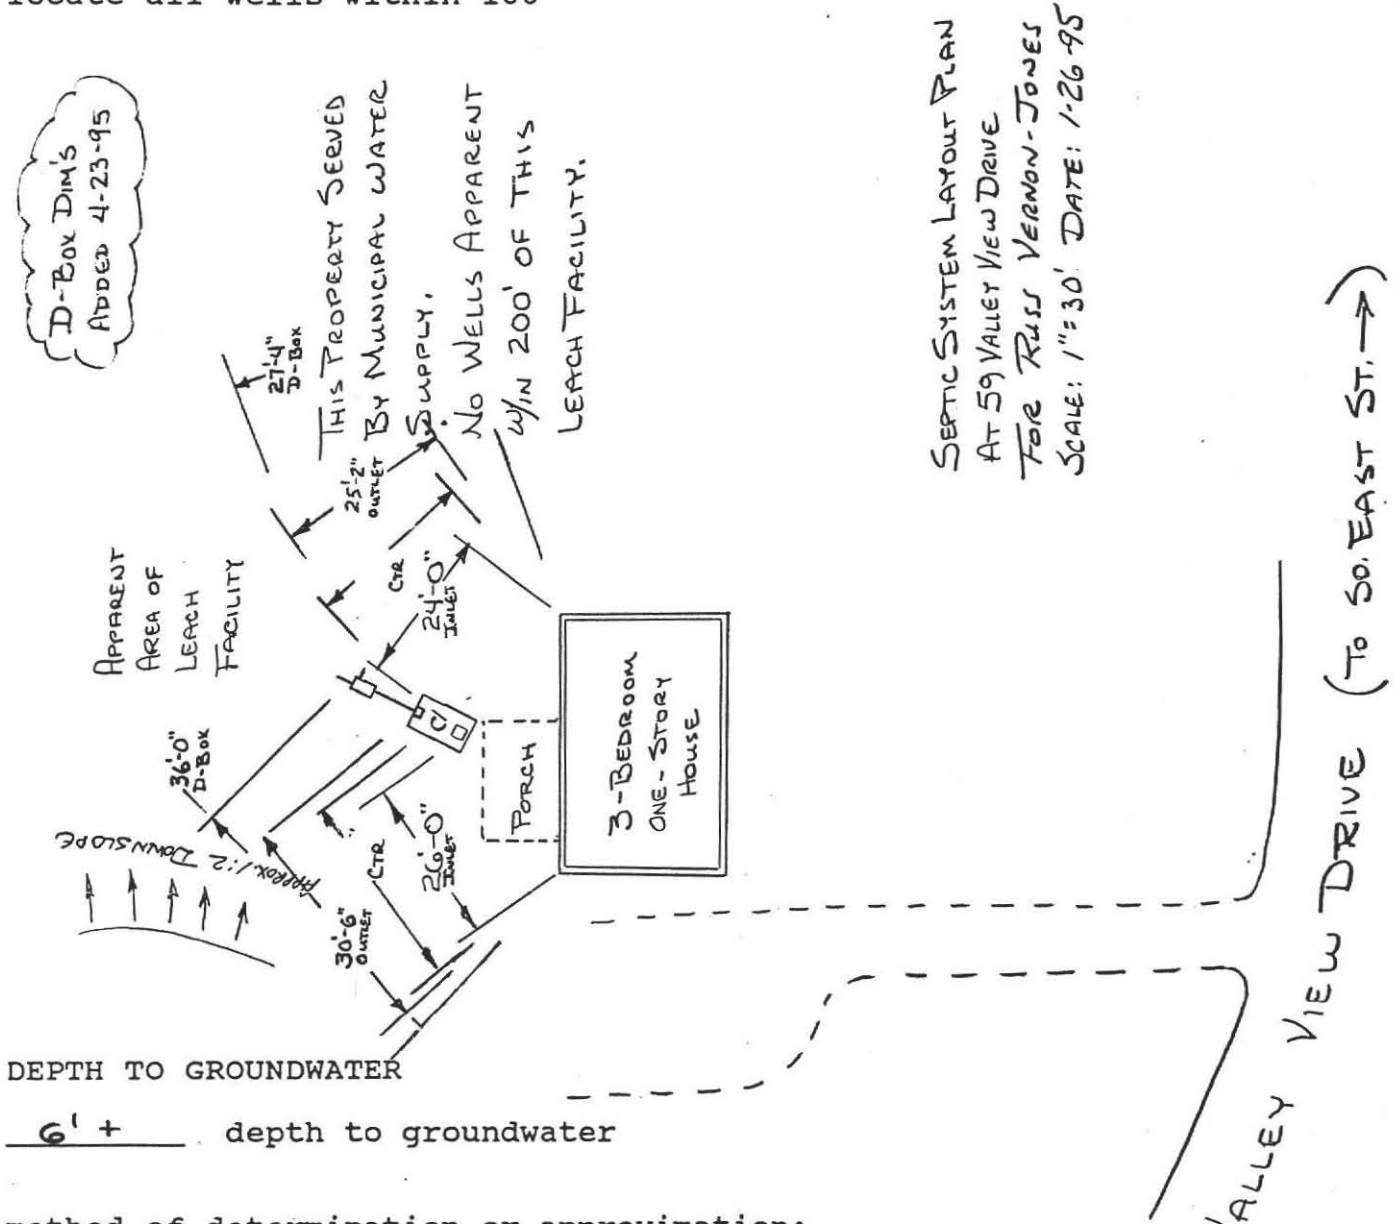 locate all wells within 100'
D-BOX DIM'S
ADDED 4-23-95
THIS PROPERTY SERVED
BY MUNICIPAL WATER
SUPPLY.
NO WELLS APPARENT
W/IN 200' OF THIS
LEACH FACILITY.
SEPTIC SYSTEM LAYOUT PLAN
AT 59 VALLEY VIEW DRIVE
FOR RUSS VERNON-JONES
SCALE: 1"=30' DATE: 1-26-95
27'-4"
D-BOX
25'-2"
OUTLET
CTR
24'-0"
INLET
APPARENT
AREA OF
LEACH
FACILITY
36'-0"
D-BOX
APPROX. 1:2 DOWNSLOPE
30'-6"
OUTLET
CTR
26'-0"
INLET
PORCH
3-BEDROOM
ONE-STORY
HOUSE
VALLEY VIEW DRIVE (TO SO. EAST ST. →)
DEPTH TO GROUNDWATER
6'+ depth to groundwater
method of determination or approximation: